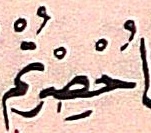 اُحْصِرْتُمْ